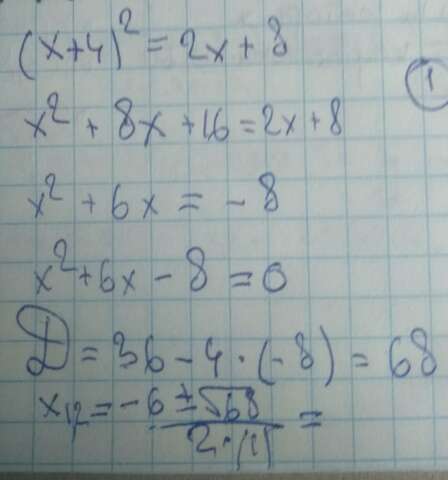 (x+4)² = 2x + 8
①
x² + 8x + 16 = 2x + 8
x² + 6x = - 8
x² + 6x - 8 = 0
D = 36 - 4 · (-8) = 68
x₁,₂ = -6 ± √68 / 2 · |1| =